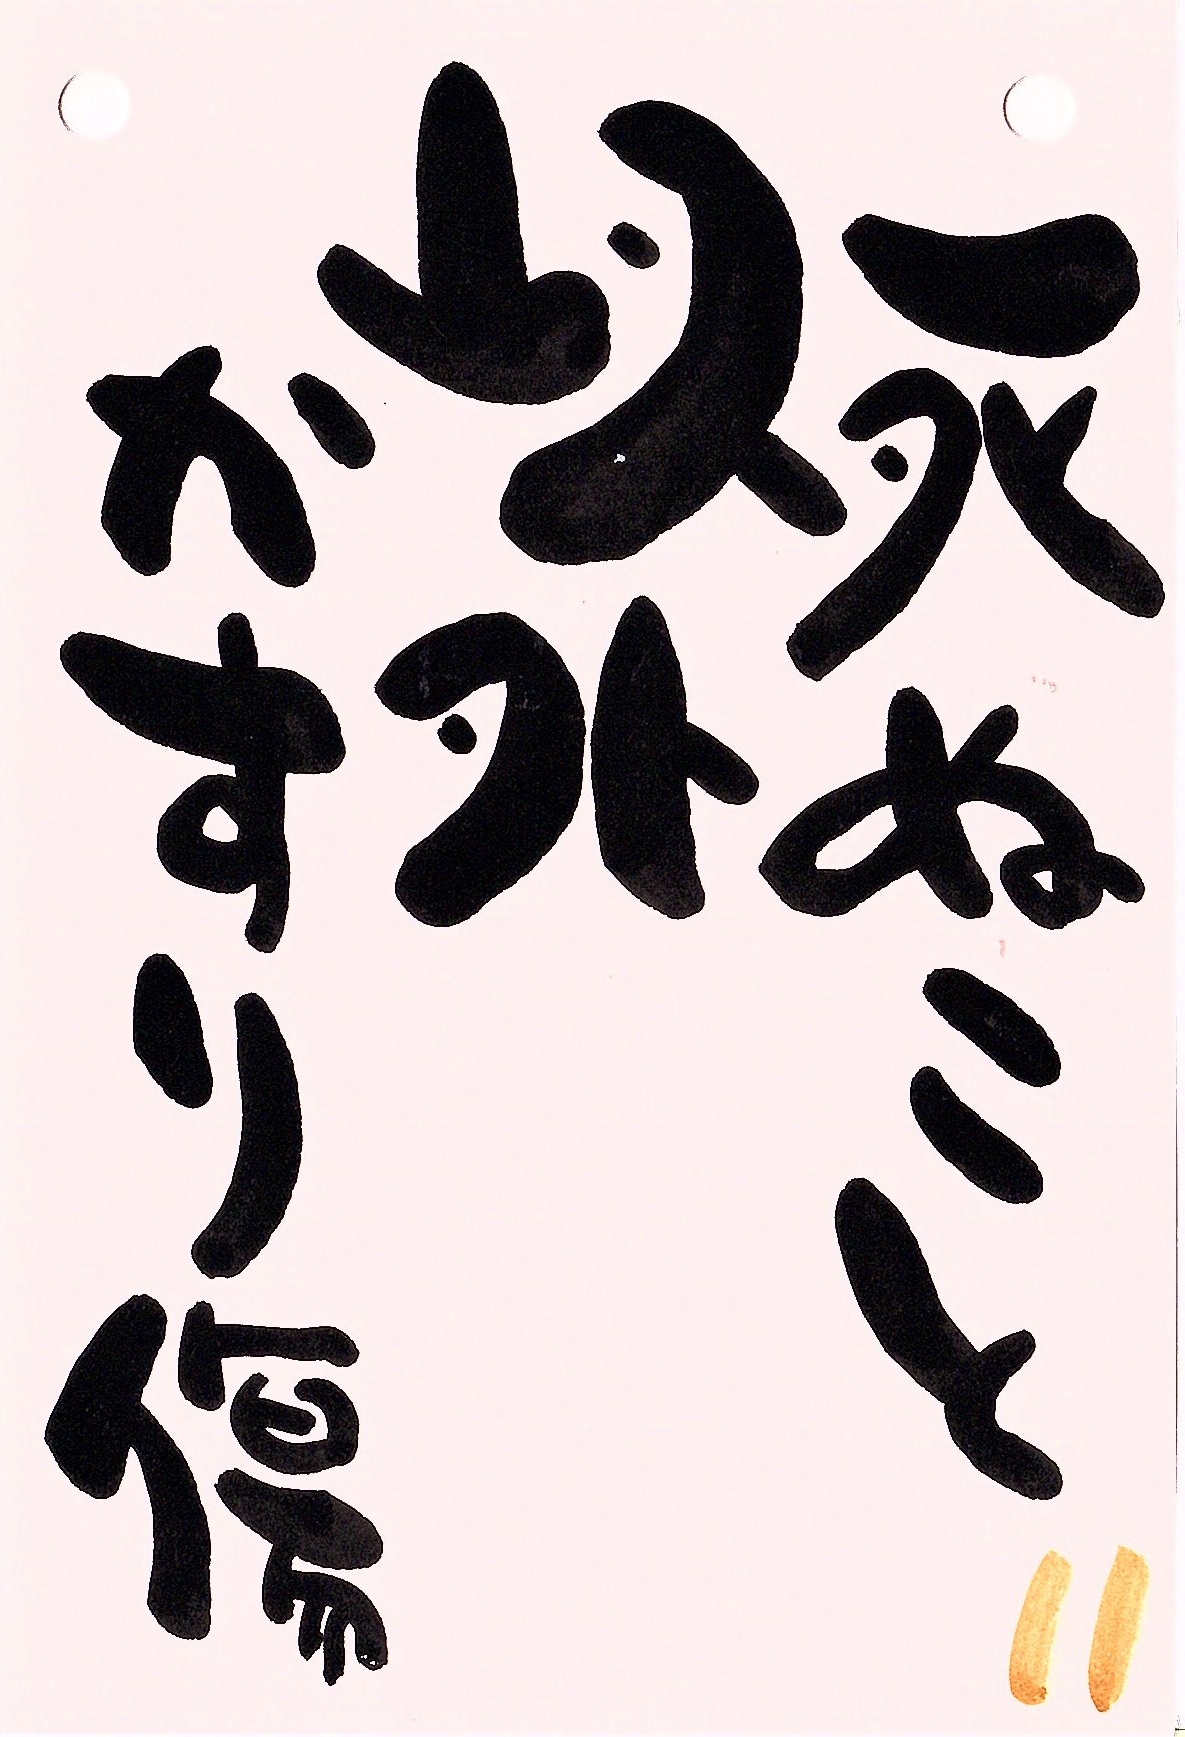 死ぬこと
以外
かすり傷